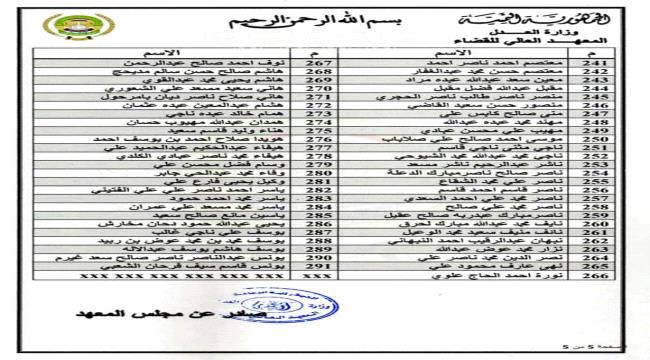 الجمهورية اليمنية
وزارة العدل
المعهد العالي للقضاء
بسم الله الرحمن الرحيم
م الاسم م الاسم
241 معتصم احمد ناصر احمد 267 نوف احمد صالح عبدالرحمن
242 معتصم حسن محمد عبدالغفار 268 هاشم صالح حسن سالم مديحج
243 معين سعد عبدالله عبده مراد 269 هاشم يحيى محمد عبدالقوي
244 مقبل عبدالله فضل مقبل 270 هاني سعيد مسعد علي الشعوري
245 منصر ناصر طالب ناصر الحجري 271 هاني صلاح ناصر ديان بامرحول
246 منصور حسن سعيد القاضي 272 هشام عبدالمعين عبده عثمان
247 منى صالح كابس علي 273 همام خالد عبده ناجي
248 مهند محمد عبده عبدالله 274 همدان عبدالله مهيوب حسان
249 مهيب علي محسن عبادي 275 هناء وليد قاسم سعيد
250 موسى احمد صالح علي صلاباب 276 هويدا صلاح احمد بن يوسف احمد
251 ناجي مثنى ناجي قاسم 277 هيفاء عبدالحكيم عبدالحميد علي
252 ناجي محمد عبدالله محمد الشبوحي 278 هيفاء محمد ناصر عبادي الكلدي
253 ناشر عبدالرحيم ناشر مسعد 279 وسام فضل محسن علي
254 ناصر صالح ناصرمبارك الدعلة 280 وفاء محمد عبدالحي جابر
255 ناصر علي محمد الشقاع 281 وكيل يحيى فارع علي
256 ناصر قاسم احمد قاسم 282 ياسر احمد ناصر علي علي الفتيني
257 ناصر محمد علي احمد السعدي 283 ياسر محمد احمد حمود
258 ناصر محمد علي صالح 284 ياسر محمد مسعد علي عمران
259 ناصرمبارك عبدربه صالح عقيل 285 ياسين مانع صالح سعيد
260 نايف محمد عبدالله مبارك لحرق 286 يحيى عبدالله حمود دحان مخارش
261 نائف منيف سعيد محمد الوعيل 287 يوسف علي ناجي غالب
262 نبهان عبدالرقيب احمد النبهاني 288 يوسف محمد بن محمد عوض بن ربيد
263 نزار محمد عوض عبدالله 289 يوسف هاشم يوسف عبدالاله
264 نصر الدين محمد ناصر علي 290 يونس عبدالناصر ناصر صالح سعد غيرم
265 نهى عارف محمود علي 291 يونس قاسم سيف فرحان الشعيبي
266 نورة احمد الحاج علوي xxx xxx xxx xxx xxx xxx xxx
صادر عن مجلس المعهد
صفحة 5 من 5